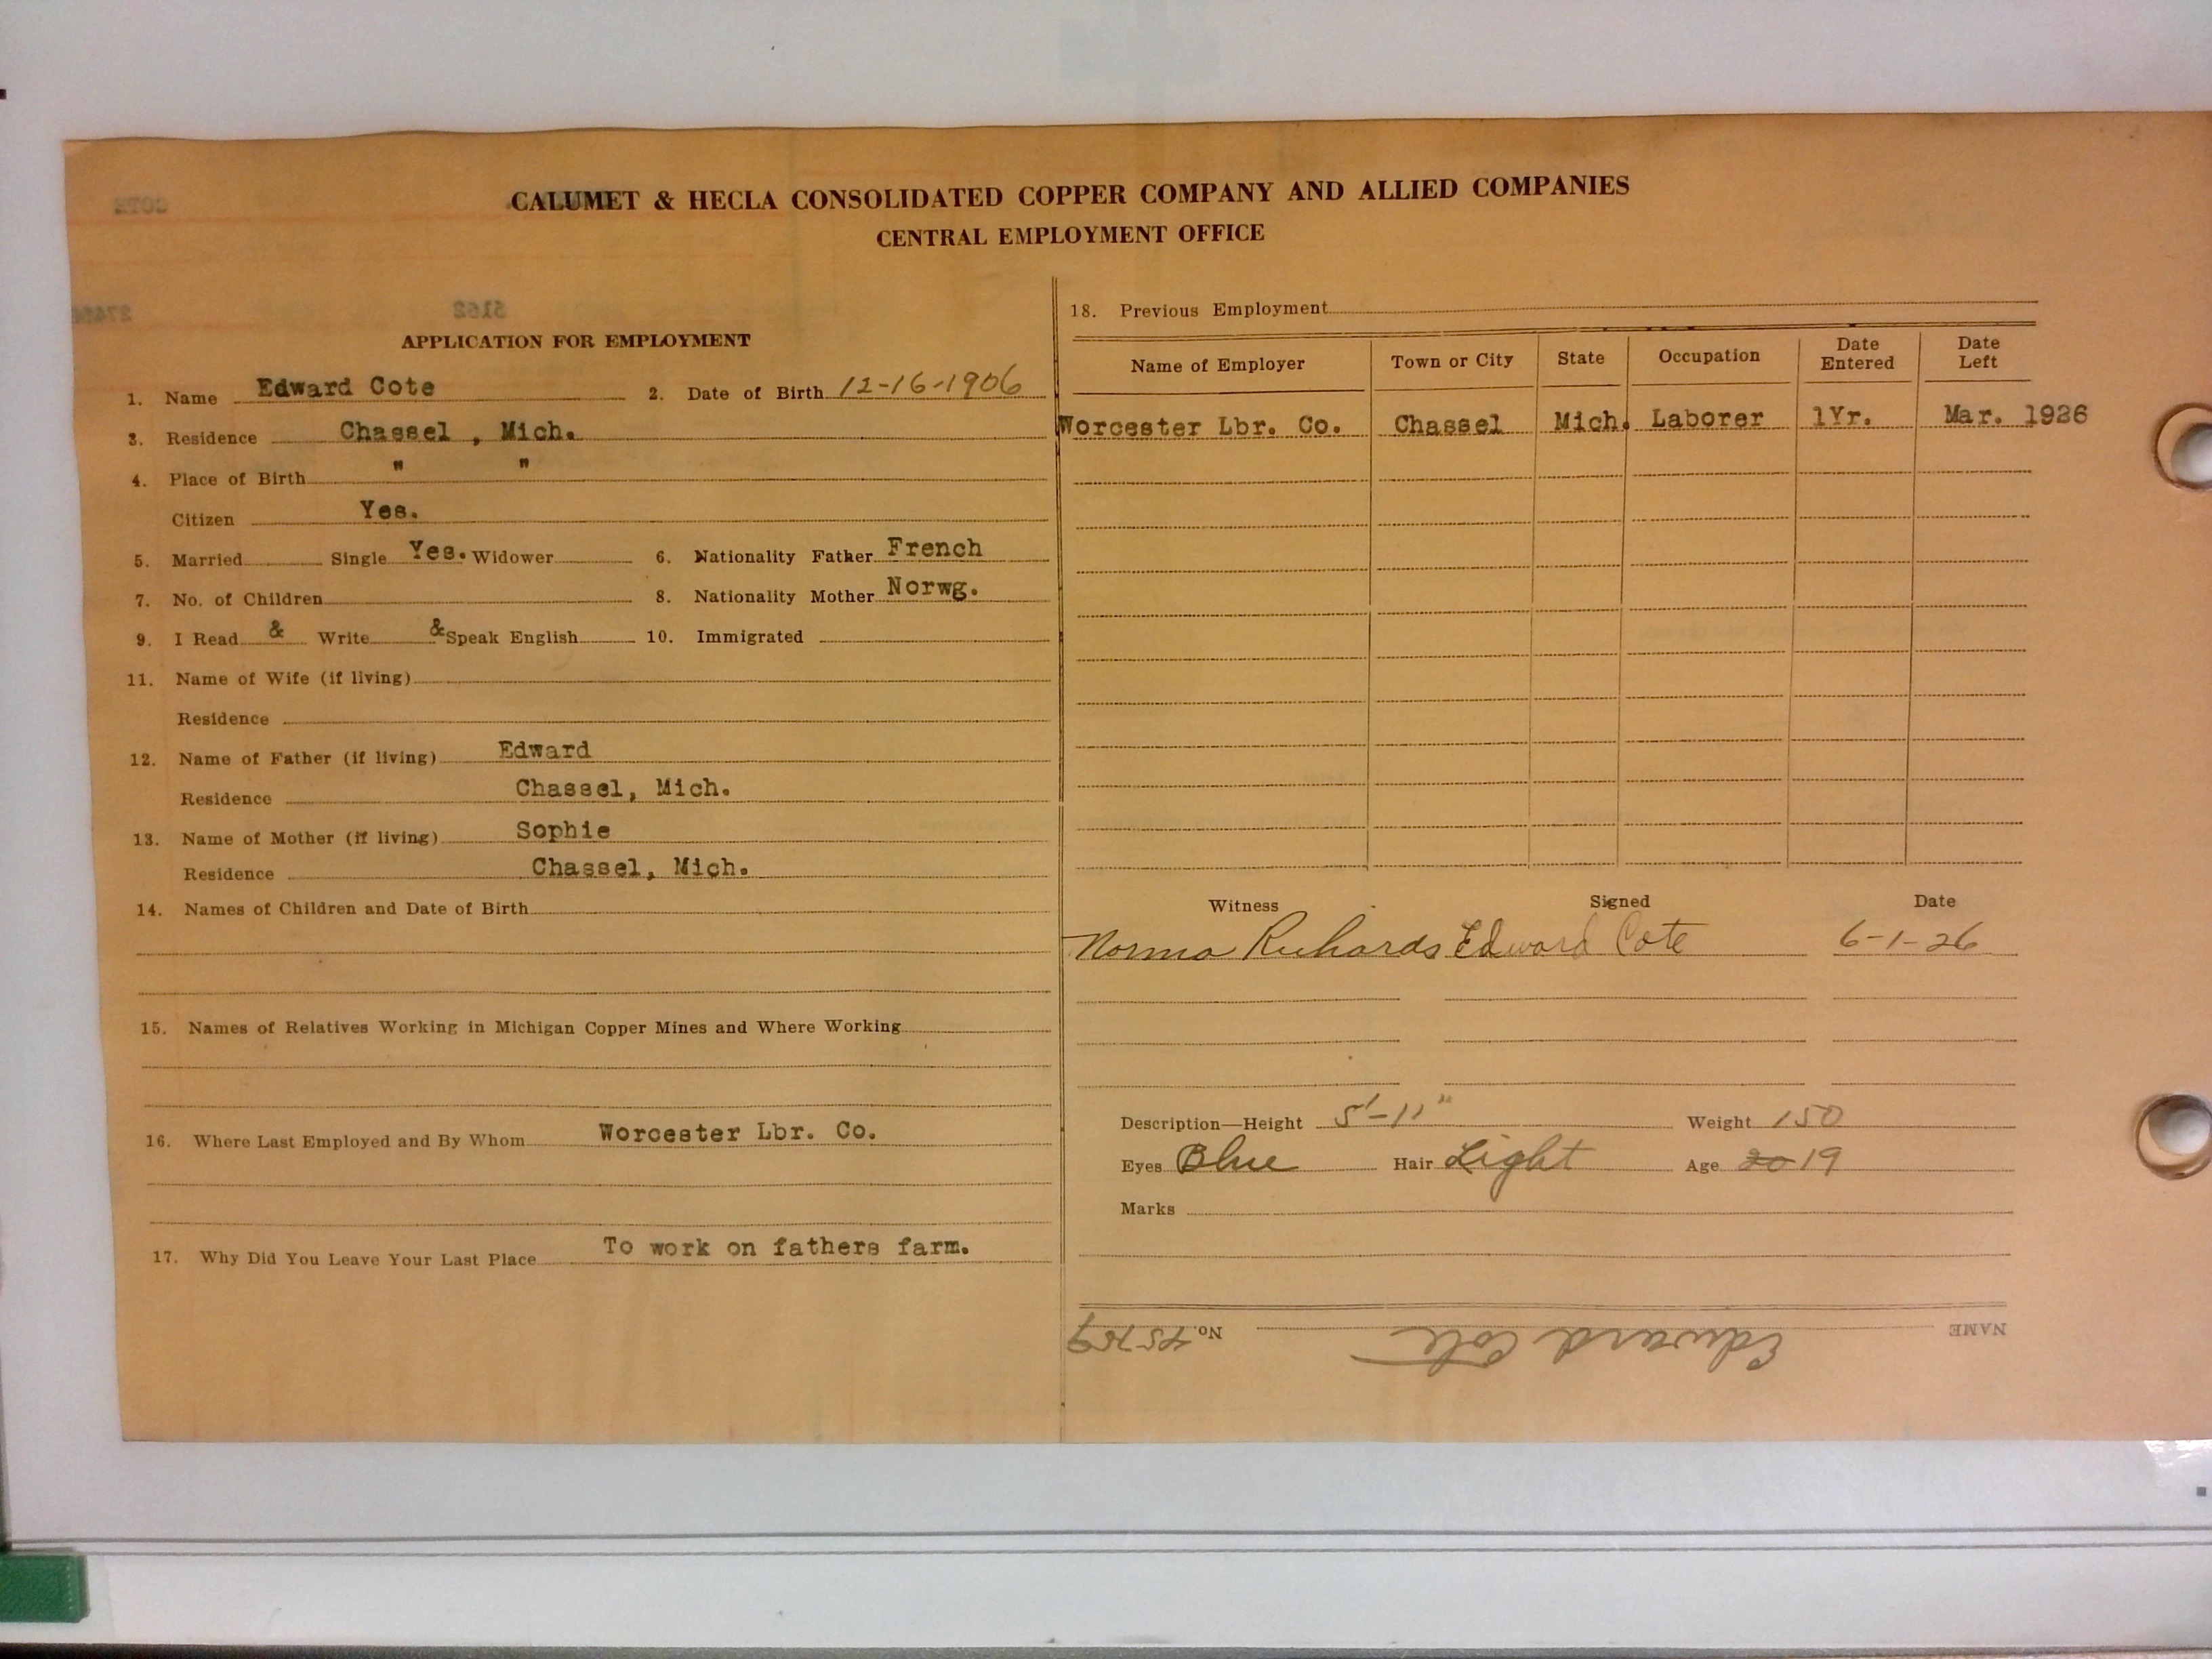 CALUMET & HECLA CONSOLIDATED COPPER COMPANY AND ALLIED COMPANIES
CENTRAL EMPLOYMENT OFFICE
APPLICATION FOR EMPLOYMENT
1. Name Edward Cote 2. Date of Birth 12-16-1906
3. Residence Chassel , Mich.
4. Place of Birth " "
Citizen Yes.
5. Married Single Yes. Widower 6. Nationality Father French
7. No. of Children 8. Nationality Mother Norwg.
9. I Read & Write & Speak English 10. Immigrated
11. Name of Wife (if living)
Residence
12. Name of Father (if living) Edward
Residence Chassel, Mich.
13. Name of Mother (if living) Sophie
Residence Chassel, Mich.
14. Names of Children and Date of Birth
15. Names of Relatives Working in Michigan Copper Mines and Where Working
16. Where Last Employed and By Whom Worcester Lbr. Co.
17. Why Did You Leave Your Last Place To work on fathers farm.
18. Previous Employment
Name of Employer Town or City State Occupation Date Entered Date Left
Worcester Lbr. Co. Chassel Mich. Laborer 1Yr. Mar. 1926
Witness Signed Date
Norma Richards Edward Cote 6-1-26
Description—Height 5'-11" Weight 150
Eyes Blue Hair Light Age 20 19
Marks
NAME Edward Cote No.
5162
COTE